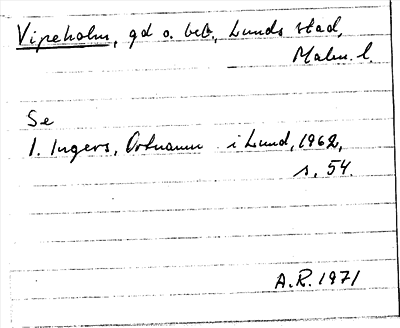 Vipeholm, gd o. beb., Lunds stad,
Malm. l.
Se
I. Ingers, Ortnamn i Lund, 1962,
s. 54.
A.R. 1971